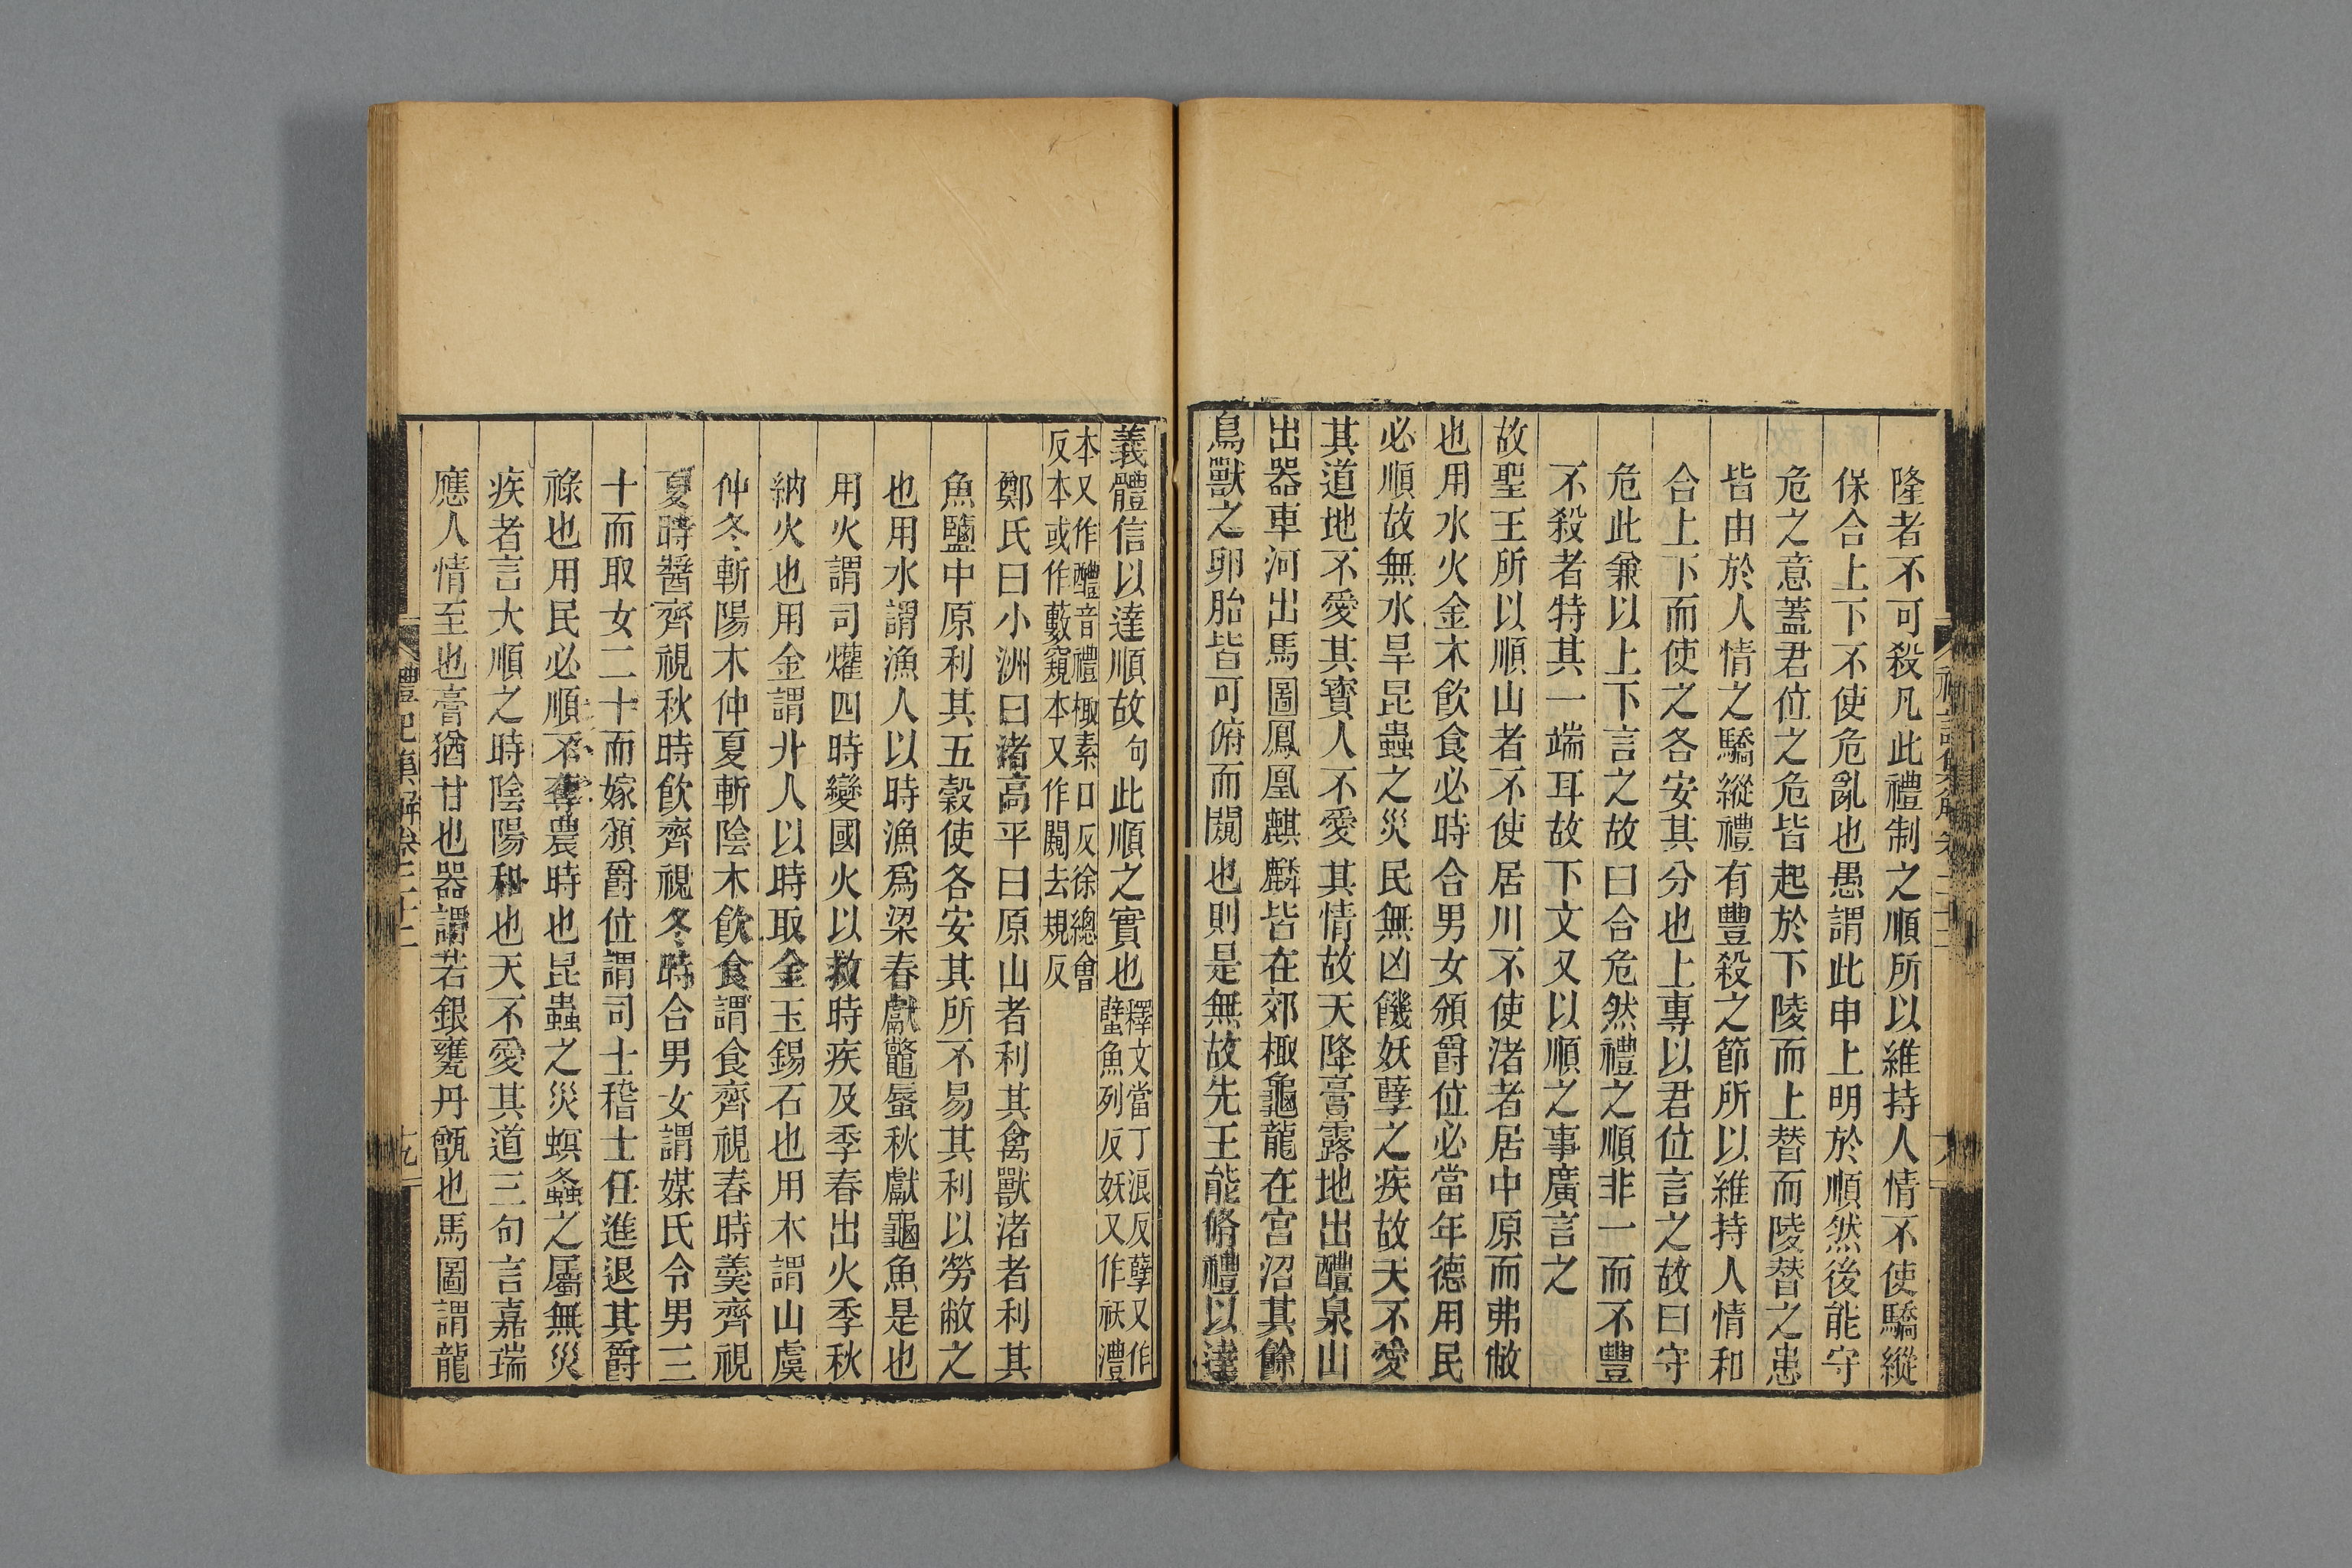 隆者不可殺凡此禮制之順所以維持人情不使驕縱
保合上下不使危亂也愚謂此申上明於順然後能守
危之意蓋君位之危皆起於下陵而上替而陵替之患
皆由於人情之驕縱禮有豐殺之節所以維持人情和
合上下而使之各安其分也上專以君位言之故曰守
危此兼以上下言之故曰合危然禮之順非一而不豐
不殺者特其一端耳故下文又以順之事廣言之
故聖王所以順山者不使居川不使渚者居中原而弗敝
也用水火金木飲食必時合男女頒爵位必當年德用民
必順故無水旱昆蟲之災民無凶饑妖孽之疾故天不愛
其道地不愛其寶人不愛其情故天降膏露地出醴泉山
出器車河出馬圖鳳凰麒麟皆在郊棷龜龍在宮沼其餘
鳥獸之卵胎皆可俯而闚也則是無故先王能脩禮以達
義體信以達順故句此順之實也釋文當丁浪反孽又作
蠥魚列反妖又作祅澧
本又作醴音禮棷素口反徐總會
反本或作藪窺本又作闚去規反
鄭氏曰小洲曰渚高平曰原山者利其禽獸渚者利其
魚鹽中原利其五穀使各安其所不易其利以勞敝之
也用水謂漁人以時漁爲梁春獻鼈蜃秋獻龜魚是也
用火謂司爟四時變國火以救時疾及季春出火季秋
納火也用金謂丱人以時取金玉錫石也用木謂山虞
仲冬斬陽木仲夏斬陰木飲食謂食齊視春時羹齊視
夏時醬齊視秋時飲齊視冬時合男女謂媒氏令男三
十而取女二十而嫁頒爵位謂司士稽士任進退其爵
祿也用民必順不奪農時也昆蟲之災螟螽之屬無災
疾者言大順之時陰陽和也天不愛其道三句言嘉瑞
應人情至也膏猶甘也器謂若銀甕丹甑也馬圖謂龍
禮記集解卷二十二
十九